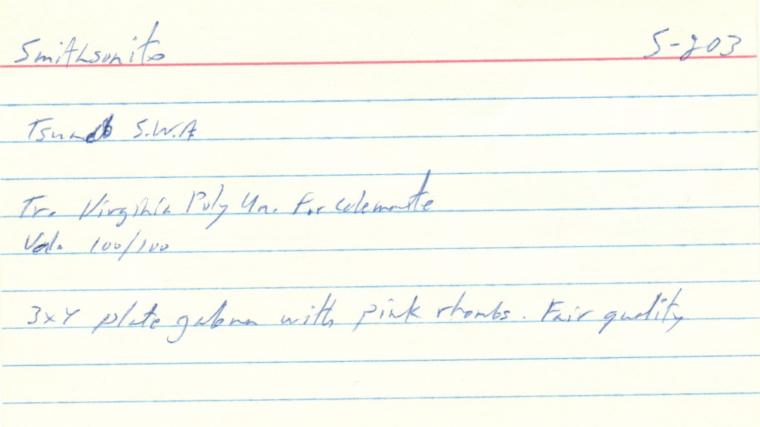 Smithsonite S-203
Tsumeb S.W.A
Tr. Virginia Poly Un. For colemanite
Val. 100/100
3x4 plate galena with pink rhombs. Fair quality